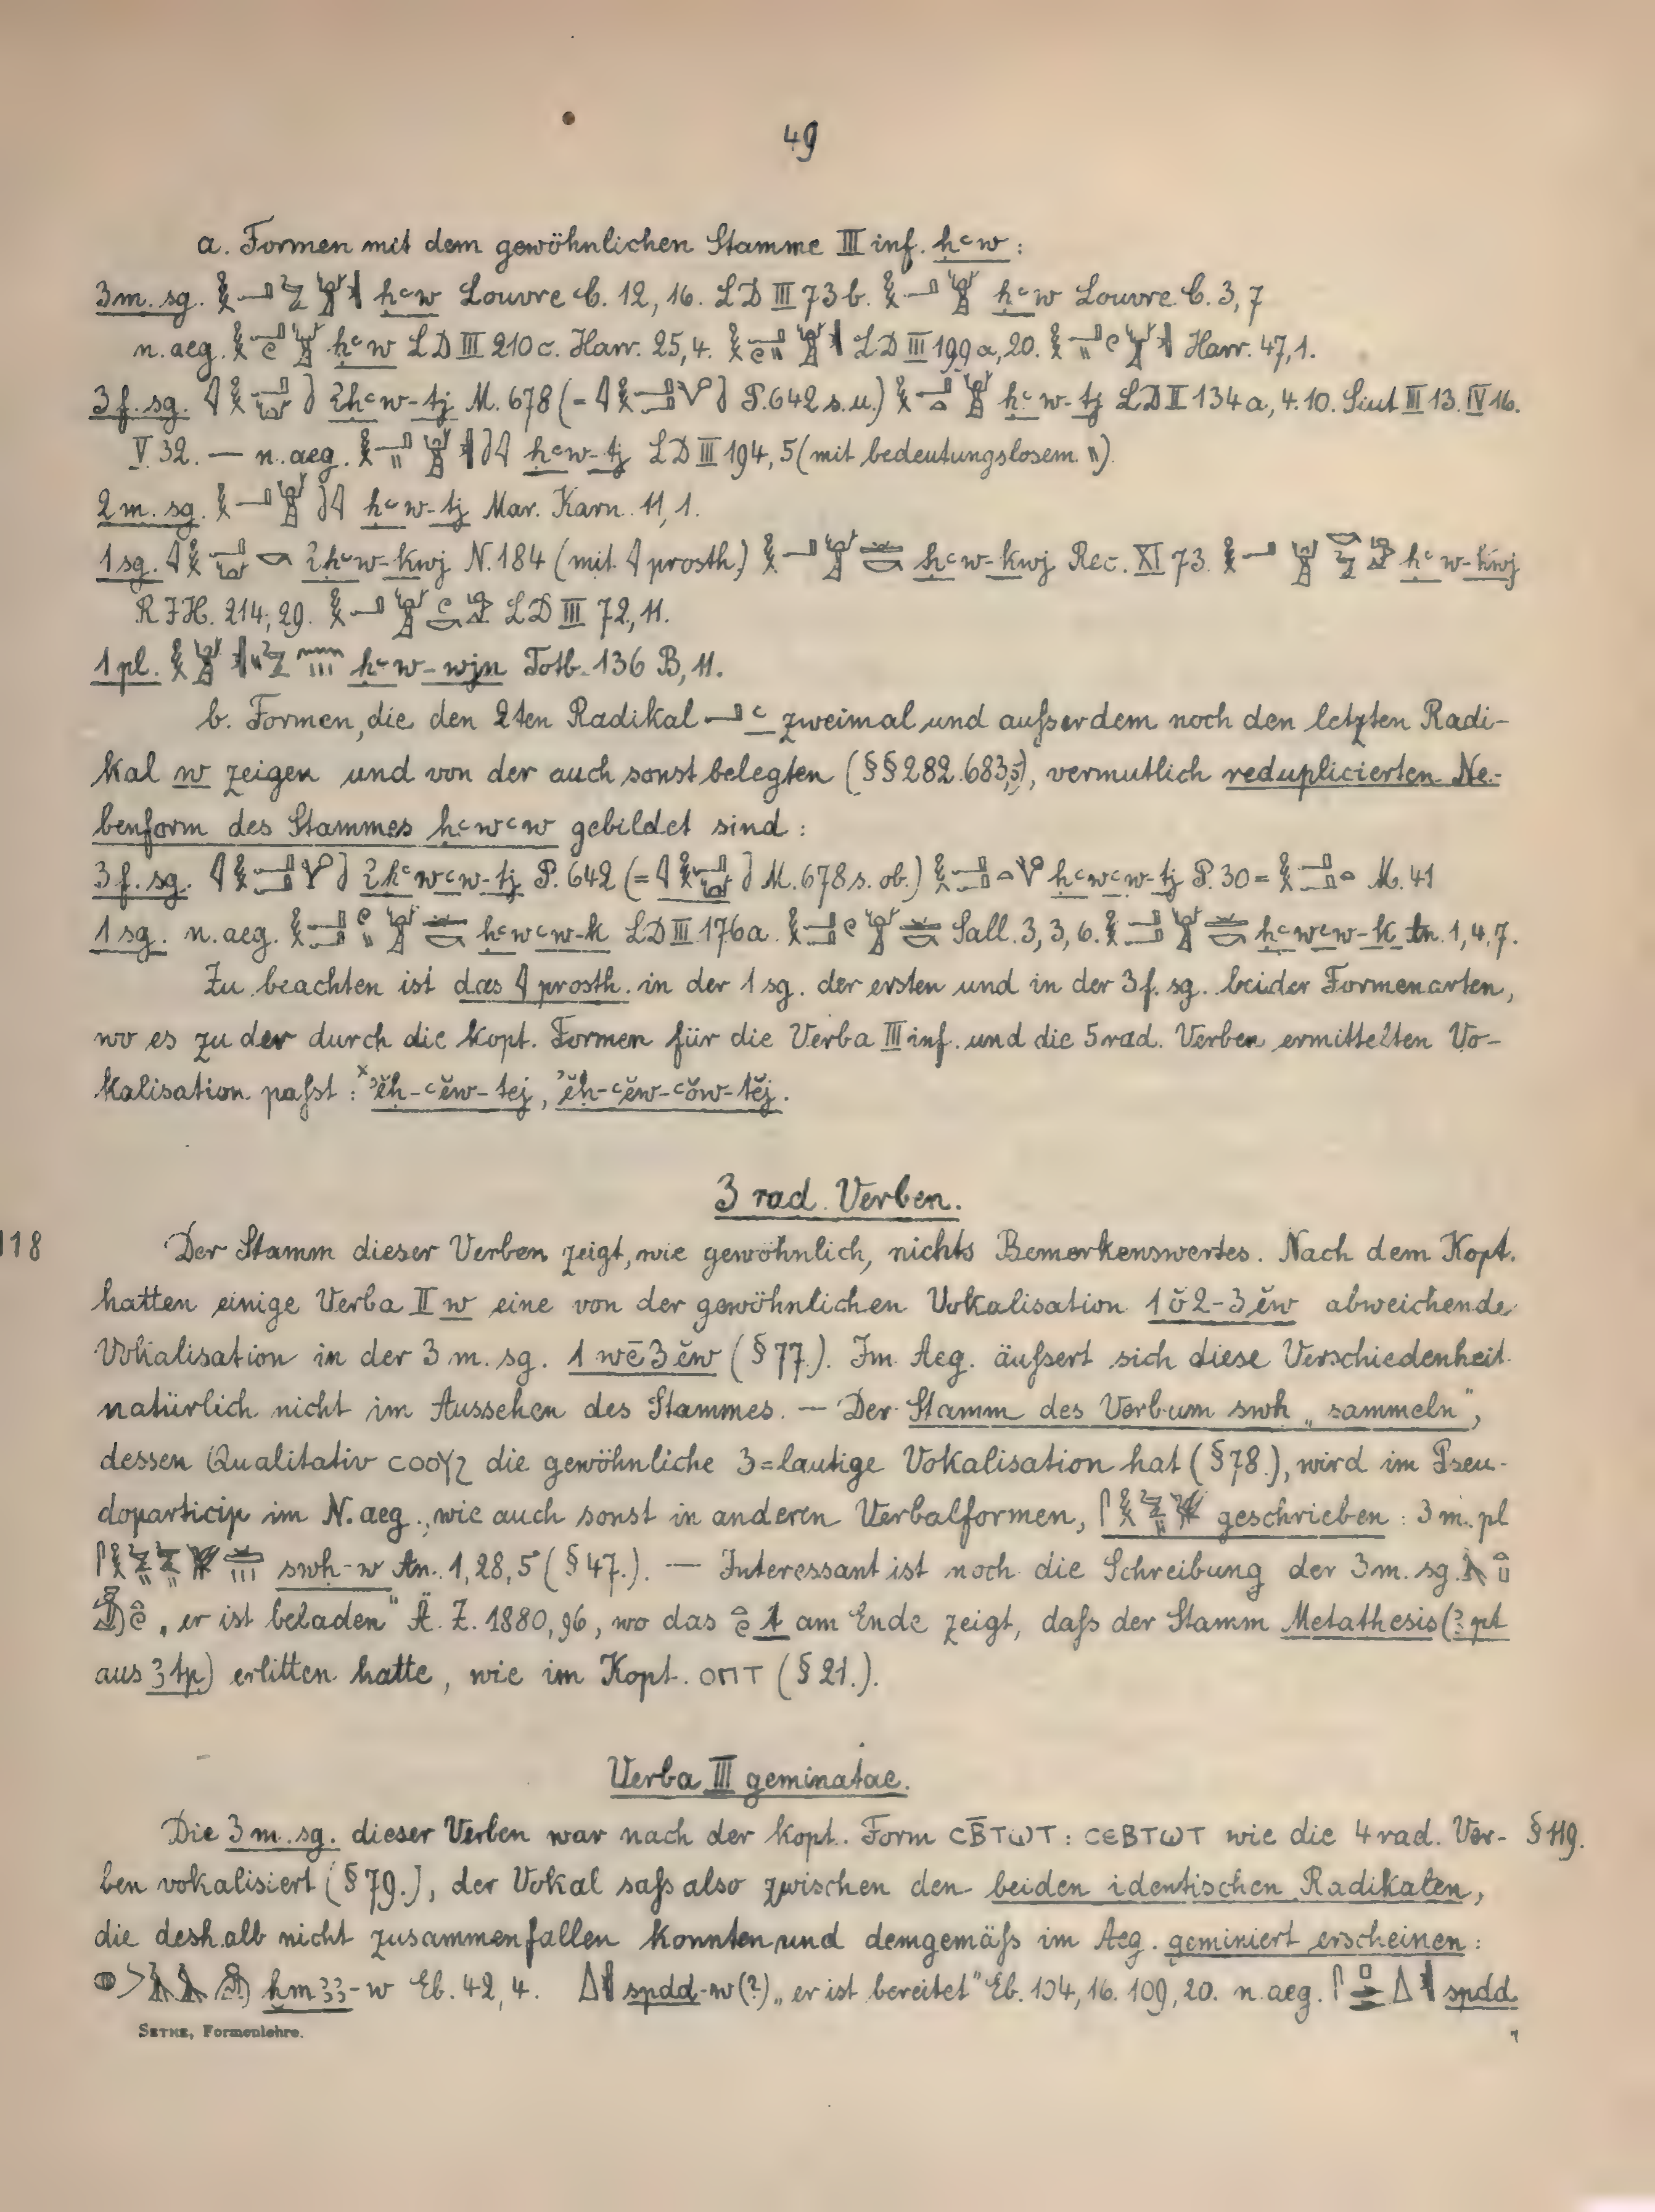 49
a. Formen mit dem gewöhnlichen Stamme III inf. ḥꜥw:
3 m. sg. ḥꜥw Louvre C. 12, 16. LD III 73 b. ḥꜥw Louvre C. 3, 7
n. aeg. ḥꜥw LD III 210 c. Harr. 25, 4. LD III 199 a, 20. Harr. 47, 1.
3 f. sg. ꞽḥꜥw-tj M. 678 (= P. 642 s. u.) ḥꜥw-tj LD II 134 a, 4. 10. Siut III 13. IV 16.
V 32. — n. aeg. ḥꜥw-tj LD III 194, 5 (mit bedeutungslosem \\).
2 m. sg. ḥꜥw-tj Mar. Karn. 11, 1.
1 sg. ꞽḥꜥw-kwj N. 184 (mit prosth.) ḥꜥw-kwj Rec. XI 73. ḥꜥw-kwj
R J H. 214, 29. LD III 72, 11.
1 pl. ḥꜥw-wjn Totb. 136 B, 11.
b. Formen, die den 2ten Radikal ꜥ zweimal und außerdem noch den letzten Radi-
kal w zeigen und von der auch sonst belegten (§§ 282. 683,5), vermutlich reduplicierten Ne-
benform des Stammes ḥꜥwꜥw gebildet sind:
3 f. sg. ꞽḥꜥwꜥw-tj P. 642 (= M. 678 s. ob.) ḥꜥwꜥw-tj P. 30 = M. 41
1 sg. n. aeg. ḥꜥwꜥw-k LD III 176 a. Sall. 3, 3, 6. ḥꜥwꜥw-k An. 1, 4, 7.
Zu beachten ist das prosth. in der 1 sg. der ersten und in der 3 f. sg. beider Formenarten,
wo es zu der durch die kopt. Formen für die Verba III inf. und die 5 rad. Verben ermittelten Vo-
kalisation paßt: ˣʾĕḥ-ꜥĕw-tej, ʾĕḥ-ꜥĕw-ꜥŏw-tĕj.
3 rad. Verben.
118 Der Stamm dieser Verben zeigt, wie gewöhnlich, nichts Bemerkenswertes. Nach dem Kopt.
hatten einige Verba II w eine von der gewöhnlichen Vokalisation 1 ŏ 2-3 ĕw abweichende
Vokalisation in der 3 m. sg. 1 wē 3 ĕw (§ 77.). Im Aeg. äußert sich diese Verschiedenheit
natürlich nicht im Aussehen des Stammes. — Der Stamm des Verbum swḥ „sammeln“,
dessen Qualitativ ⲥⲟⲟⲩϩ die gewöhnliche 3=lautige Vokalisation hat (§ 78.), wird im Pseu-
doparticip im N. aeg., wie auch sonst in anderen Verbalformen, geschrieben: 3 m. pl
swḥ-w An. 1, 28, 5 (§ 47.). — Interessant ist noch die Schreibung der 3 m. sg.
„er ist beladen“ Ä. Z. 1880, 96, wo das t am Ende zeigt, daß der Stamm Metathesis (ꜣpt
aus ꜣtp) erlitten hatte, wie im Kopt. ⲟⲡⲧ (§ 21.).
Verba III geminatae.
Die 3 m. sg. dieser Verben war nach der kopt. Form ⲥⲃ̄ⲧⲱⲧ: ⲥⲉⲃⲧⲱⲧ wie die 4 rad. Ver- § 119.
ben vokalisiert (§ 79.), der Vokal saß also zwischen den beiden identischen Radikalen,
die deshalb nicht zusammenfallen konnten und demgemäß im Aeg. geminiert erscheinen:
ḫmꜣꜣ-w Eb. 42, 4. spdd-w (?) „er ist bereitet“ Eb. 104, 16. 109, 20. n. aeg. spdd
SETHE, Formenlehre.